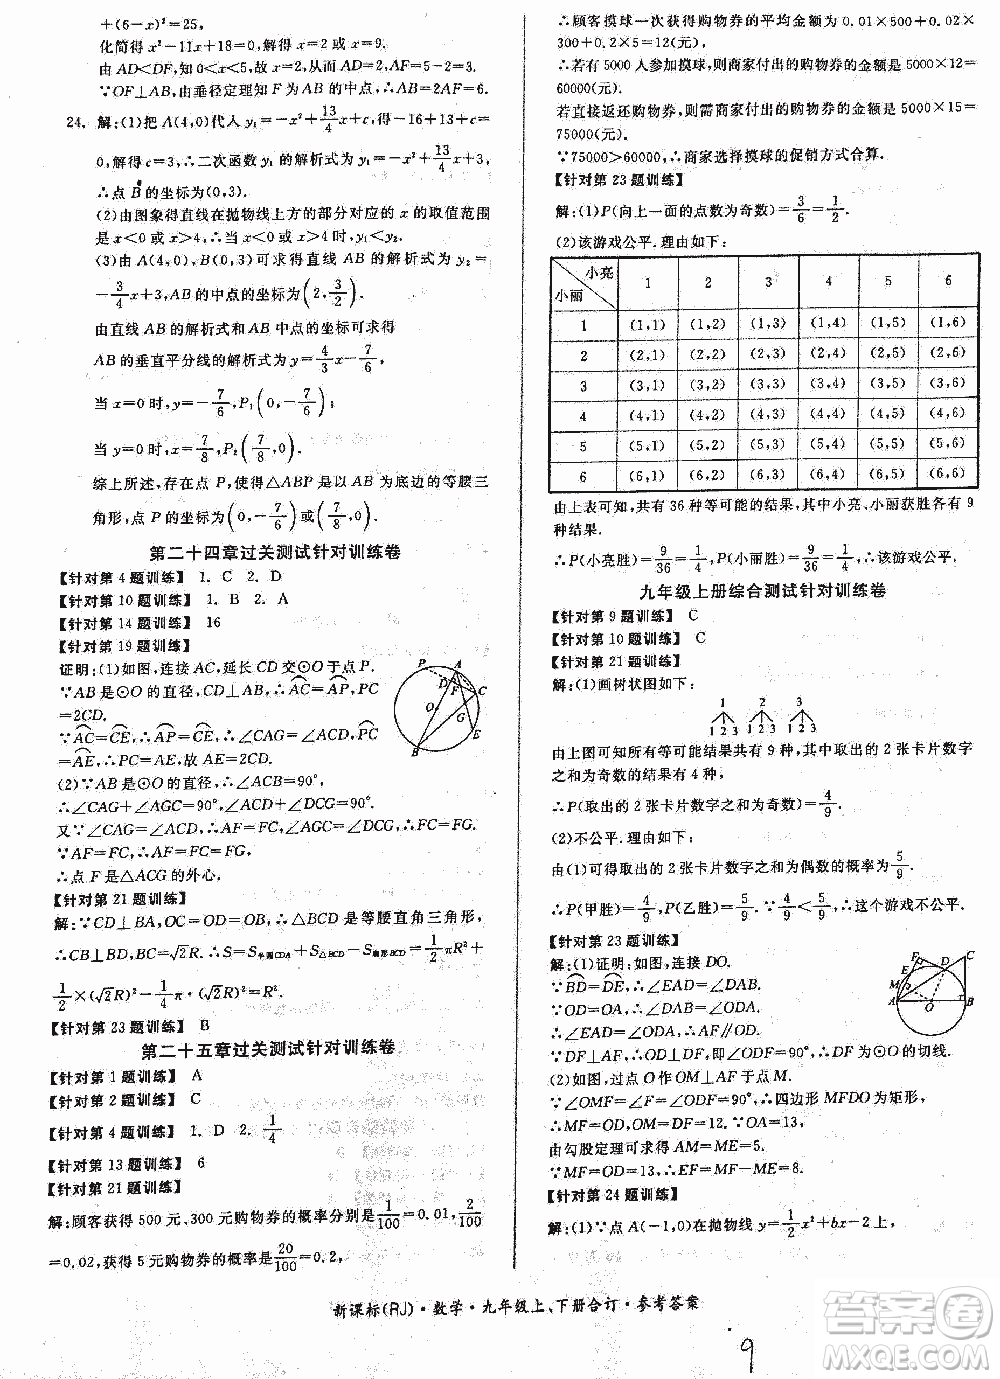 +(6-x)²=25,
化简得 x²-11x+18=0,解得 x=2 或 x=9.
由 AD<DF,知 0<x<5,故 x=2,从而 AD=2,AF=5-2=3.
∵OF⊥AB,由垂径定理知 F 为 AB 的中点,∴AB=2AF=6.
24. 解:(1)把 A(4,0)代入 y₁=-x²+13/4 x+c,得-16+13+c=
0,解得 c=3,∴二次函数 y₁ 的解析式为 y₁=-x²+13/4 x+3,
∴点 B 的坐标为(0,3).
(2)由图象得直线在抛物线上方的部分对应的 x 的取值范围
是 x<0 或 x>4,∴当 x<0 或 x>4 时,y₁<y₂.
(3)由 A(4,0),B(0,3)可求得直线 AB 的解析式为 y₂=
-3/4 x+3,AB 的中点的坐标为(2,3/2).
由直线 AB 的解析式和 AB 中点的坐标可求得
AB 的垂直平分线的解析式为 y=4/3 x-7/6,
当 x=0 时,y=-7/6,P₁(0,-7/6);
当 y=0 时,x=7/8,P₂(7/8,0).
综上所述,存在点 P,使得△ABP 是以 AB 为底边的等腰三
角形,点 P 的坐标为(0,-7/6)或(7/8,0).
第二十四章过关测试针对训练卷
【针对第 4 题训练】 1. C 2. D
【针对第 10 题训练】 1. B 2. A
【针对第 14 题训练】 16
【针对第 19 题训练】
证明:(1)如图,连接 AC,延长 CD 交⊙O 于点 P.
∵AB 是⊙O 的直径,CD⊥AB,∴AC=AP,PC
=2CD.
∵AC=CE,∴AP=CE,∴AC=PE,
∴AE=PC,故 AE=2CD.
(2)∵AB 是⊙O 的直径,∴∠ACB=90°,
∴∠CAG+∠AGC=90°,∠ACD+∠DCG=90°.
又∵∠CAG=∠ACD,∴AF=FC,∠AGC=∠DCG,∴FC=FG.
∵AF=FC,∴AF=FC=FG,
∴点 F 是△ACG 的外心.
【针对第 21 题训练】
解:∵CD⊥BA,OC=OD=OB,∴△BCD 是等腰直角三角形,
∴CB⊥BD,BC=√2R,∴S=S半圆CDA+S△BCD-S扇形BCD=1/2 πR²+
1/2×(√2R)²-1/4 π·(√2R)²=R².
【针对第 23 题训练】 B
第二十五章过关测试针对训练卷
【针对第 1 题训练】 A
【针对第 2 题训练】 C
【针对第 4 题训练】 1. D 2. 1/4
【针对第 13 题训练】 6
【针对第 21 题训练】
解:顾客获得 500 元、300 元购物券的概率分别是1/100=0.01,2/100
=0.02,获得 5 元购物券的概率是20/100=0.2,
∴顾客摸球一次获得购物券的平均金额为 0.01×500+0.02×
300+0.2×5=12(元),
∴若有 5000 人参加摸球,则商家付出的购物券的金额是 5000×12=
60000(元).
若直接返还购物券,则需商家付出的购物券的金额是 5000×15=
75000(元).
∵75000>60000,∴商家选择摸球的促销方式合算.
【针对第 23 题训练】
解:(1)P(向上一面的点数为奇数)=3/6=1/2.
(2)该游戏公平.理由如下:
小亮 小丽 1 2 3 4 5 6
1 (1,1) (1,2) (1,3) (1,4) (1,5) (1,6)
2 (2,1) (2,2) (2,3) (2,4) (2,5) (2,6)
3 (3,1) (3,2) (3,3) (3,4) (3,5) (3,6)
4 (4,1) (4,2) (4,3) (4,4) (4,5) (4,6)
5 (5,1) (5,2) (5,3) (5,4) (5,5) (5,6)
6 (6,1) (6,2) (6,3) (6,4) (6,5) (6,6)
由上表可知,共有 36 种等可能的结果,其中小亮、小丽获胜各有 9
种结果.
∴P(小亮胜)=9/36=1/4,P(小丽胜)=9/36=1/4,∴该游戏公平.
九年级上册综合测试针对训练卷
【针对第 9 题训练】 C
【针对第 10 题训练】 C
【针对第 21 题训练】
解:(1)画树状图如下:
1 2 3
1 2 3 1 2 3 1 2 3
由上图可知所有等可能结果共有 9 种,其中取出的 2 张卡片数字
之和为奇数的结果有 4 种,
∴P(取出的 2 张卡片数字之和为奇数)=4/9.
(2)不公平.理由如下:
由(1)可得取出的 2 张卡片数字之和为偶数的概率为5/9.
∴P(甲胜)=4/9,P(乙胜)=5/9.∵4/9<5/9,∴这个游戏不公平.
【针对第 23 题训练】
解:(1)证明:如图,连接 DO.
∵BD=DE,∴∠EAD=∠DAB.
∵OD=OA,∴∠ODA=∠DAO,
∴∠EAD=∠ODA,∴AF∥OD.
∵DF⊥AF,∴∠ODF=90°,∴DF 为⊙O 的切线.
(2)如图,过点 O 作 OM⊥AF 于点 M.
∵∠OMF=∠F=∠ODF=90°,∴四边形 MFDO 为矩形,
∴MF=DO=13,OM=DF=12.∵OA=13,
由勾股定理可求得 AM=ME=5.
∵MF=OD=13,∴EF=MF-ME=8.
【针对第 24 题训练】
解:(1)∵点 A(-1,0)在抛物线 y=1/2 x²+bx-2 上,
新课标(RJ)·数学·九年级上、下册合订·参考答案
9
答案圈
MXQE.COM